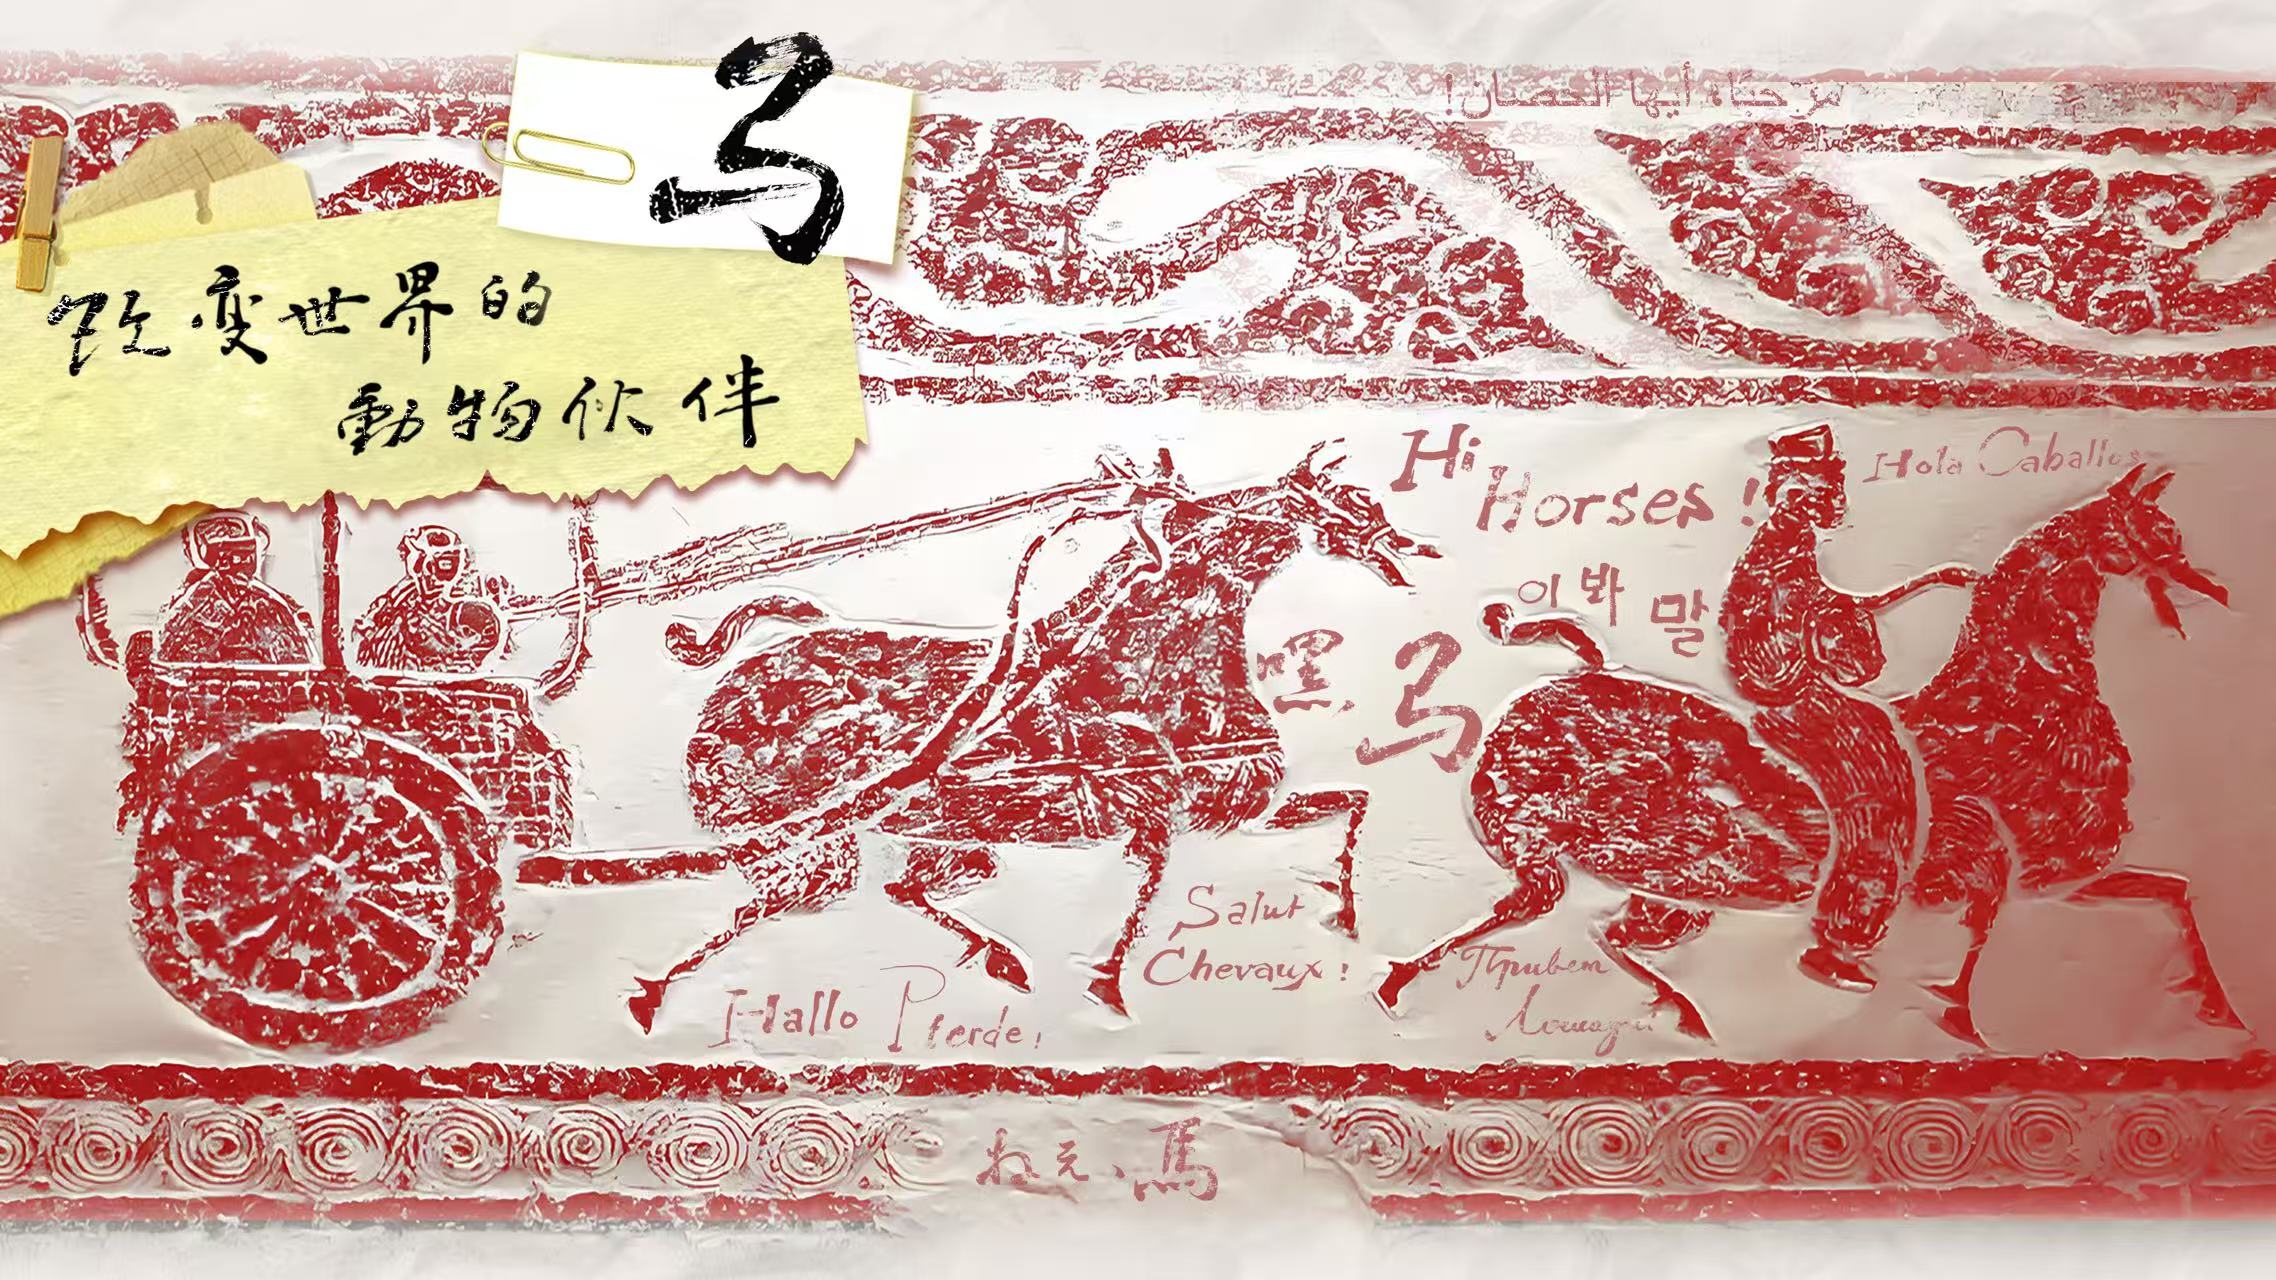 马
改变世界的
動物伙伴
مرحبًا، أيها الحصان!
Hi
Horses!
Hola Caballos
이봐
말
嘿,
马
Salut
Chevaux!
Привет
Лошади
Hallo Pferde!
ねえ、馬